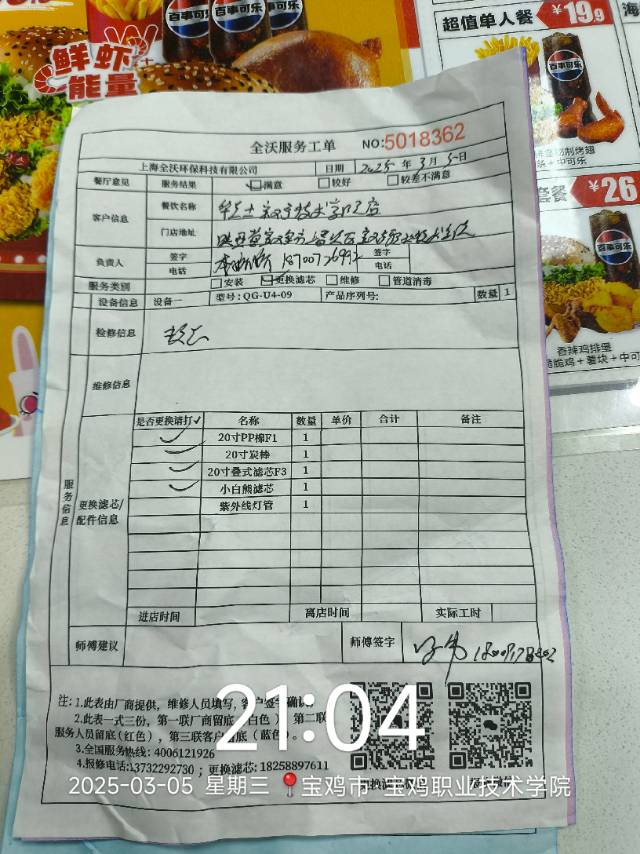 鲜虾
能量
百事可乐
百事可乐
超值单人餐 ¥19.9
百事可乐
¥26
百事可乐
香辣鸡排堡
全沃服务工单 NO:5018362
上海全沃环保科技有限公司 日期 2025年3月5日
餐厅意见 服务结果 满意 较好 较差不满意
客户信息 餐饮名称
门店地址
负责人 签字 电话 签字 电话
服务类别 安装 更换滤芯 维修 管道消毒
设备信息 设备一 型号:QG-U4-09 产品序列号: 数量 1
检修信息
维修信息
服务信息 更换滤芯/配件信息
是否更换请打√ 名称 数量 单价 合计 备注
20寸PP棉F1 1
20寸炭棒 1
20寸叠式滤芯F3 1
小白熊滤芯 1
紫外线灯管 1
进店时间 离店时间 实际工时
师傅建议 师傅签字
注:1.此表由厂商提供,维修人员填写,客户签字确认
2.此表一式三份,第一联厂商留底(白色) 第二联
服务人员留底(红色),第三联客户留底(蓝色)。
3.全国服务热线:4006121926
4.报修电话:13732292730;更换滤芯:18258897611
21:04
2025-03-05 星期三 宝鸡市·宝鸡职业技术学院